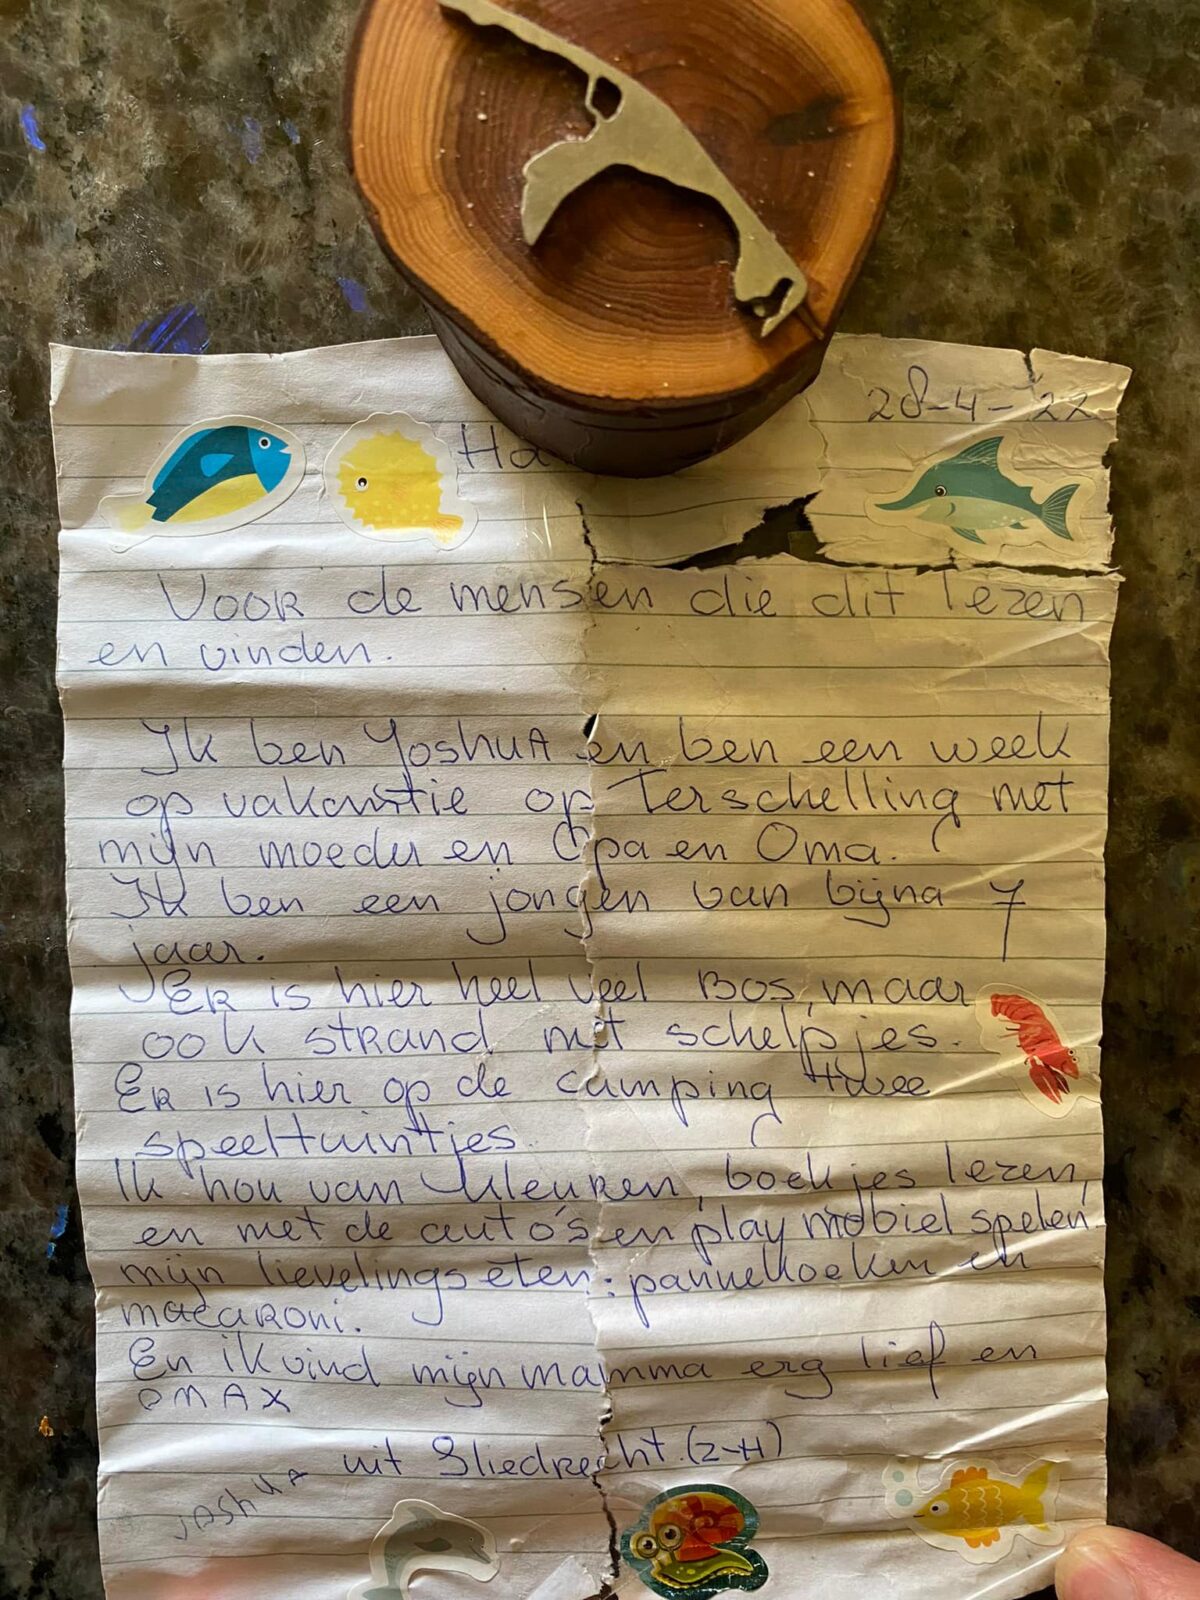 28-4-'22
Voor de mensen die dit lezen
en vinden.
Ik ben Yoshua en ben een week
op vakantie op Terschelling met
mijn moeder en Opa en Oma.
Ik ben een jongen van bijna 7
jaar.
Er is hier heel veel Bos, maar
ook strand met schelpjes.
Er is hier op de camping twee
speeltuintjes.
Ik hou van kleuren, boekjes lezen,
en met de auto's en play mobiel spelen
mijn lievelingseten: pannekoeken en
macaroni.
En ik vind mijn mamma erg lief en
OMAX
uit Sliedrecht. (Z-H)
JOSHUA